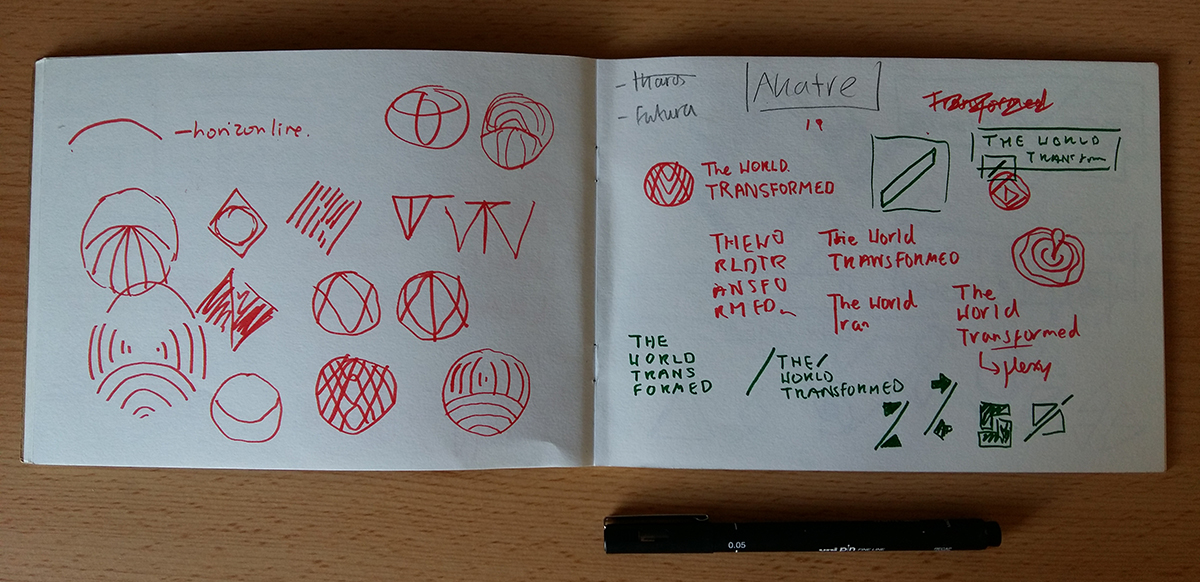 — horizon line.
- Futura
Akatre
Transformed
19
THE WORLD
TRANSForm
The WORLD.
TRANSFORMED
THEWO
RLDTR
ANSFO
RMED
The World
TRANSFORMED
The World
Tran
The
World
Transformed
THE
WORLD
TRANS
FORMED
THE
WORLD
TRANSFORMED
0.05
uni PiN FINE LINE